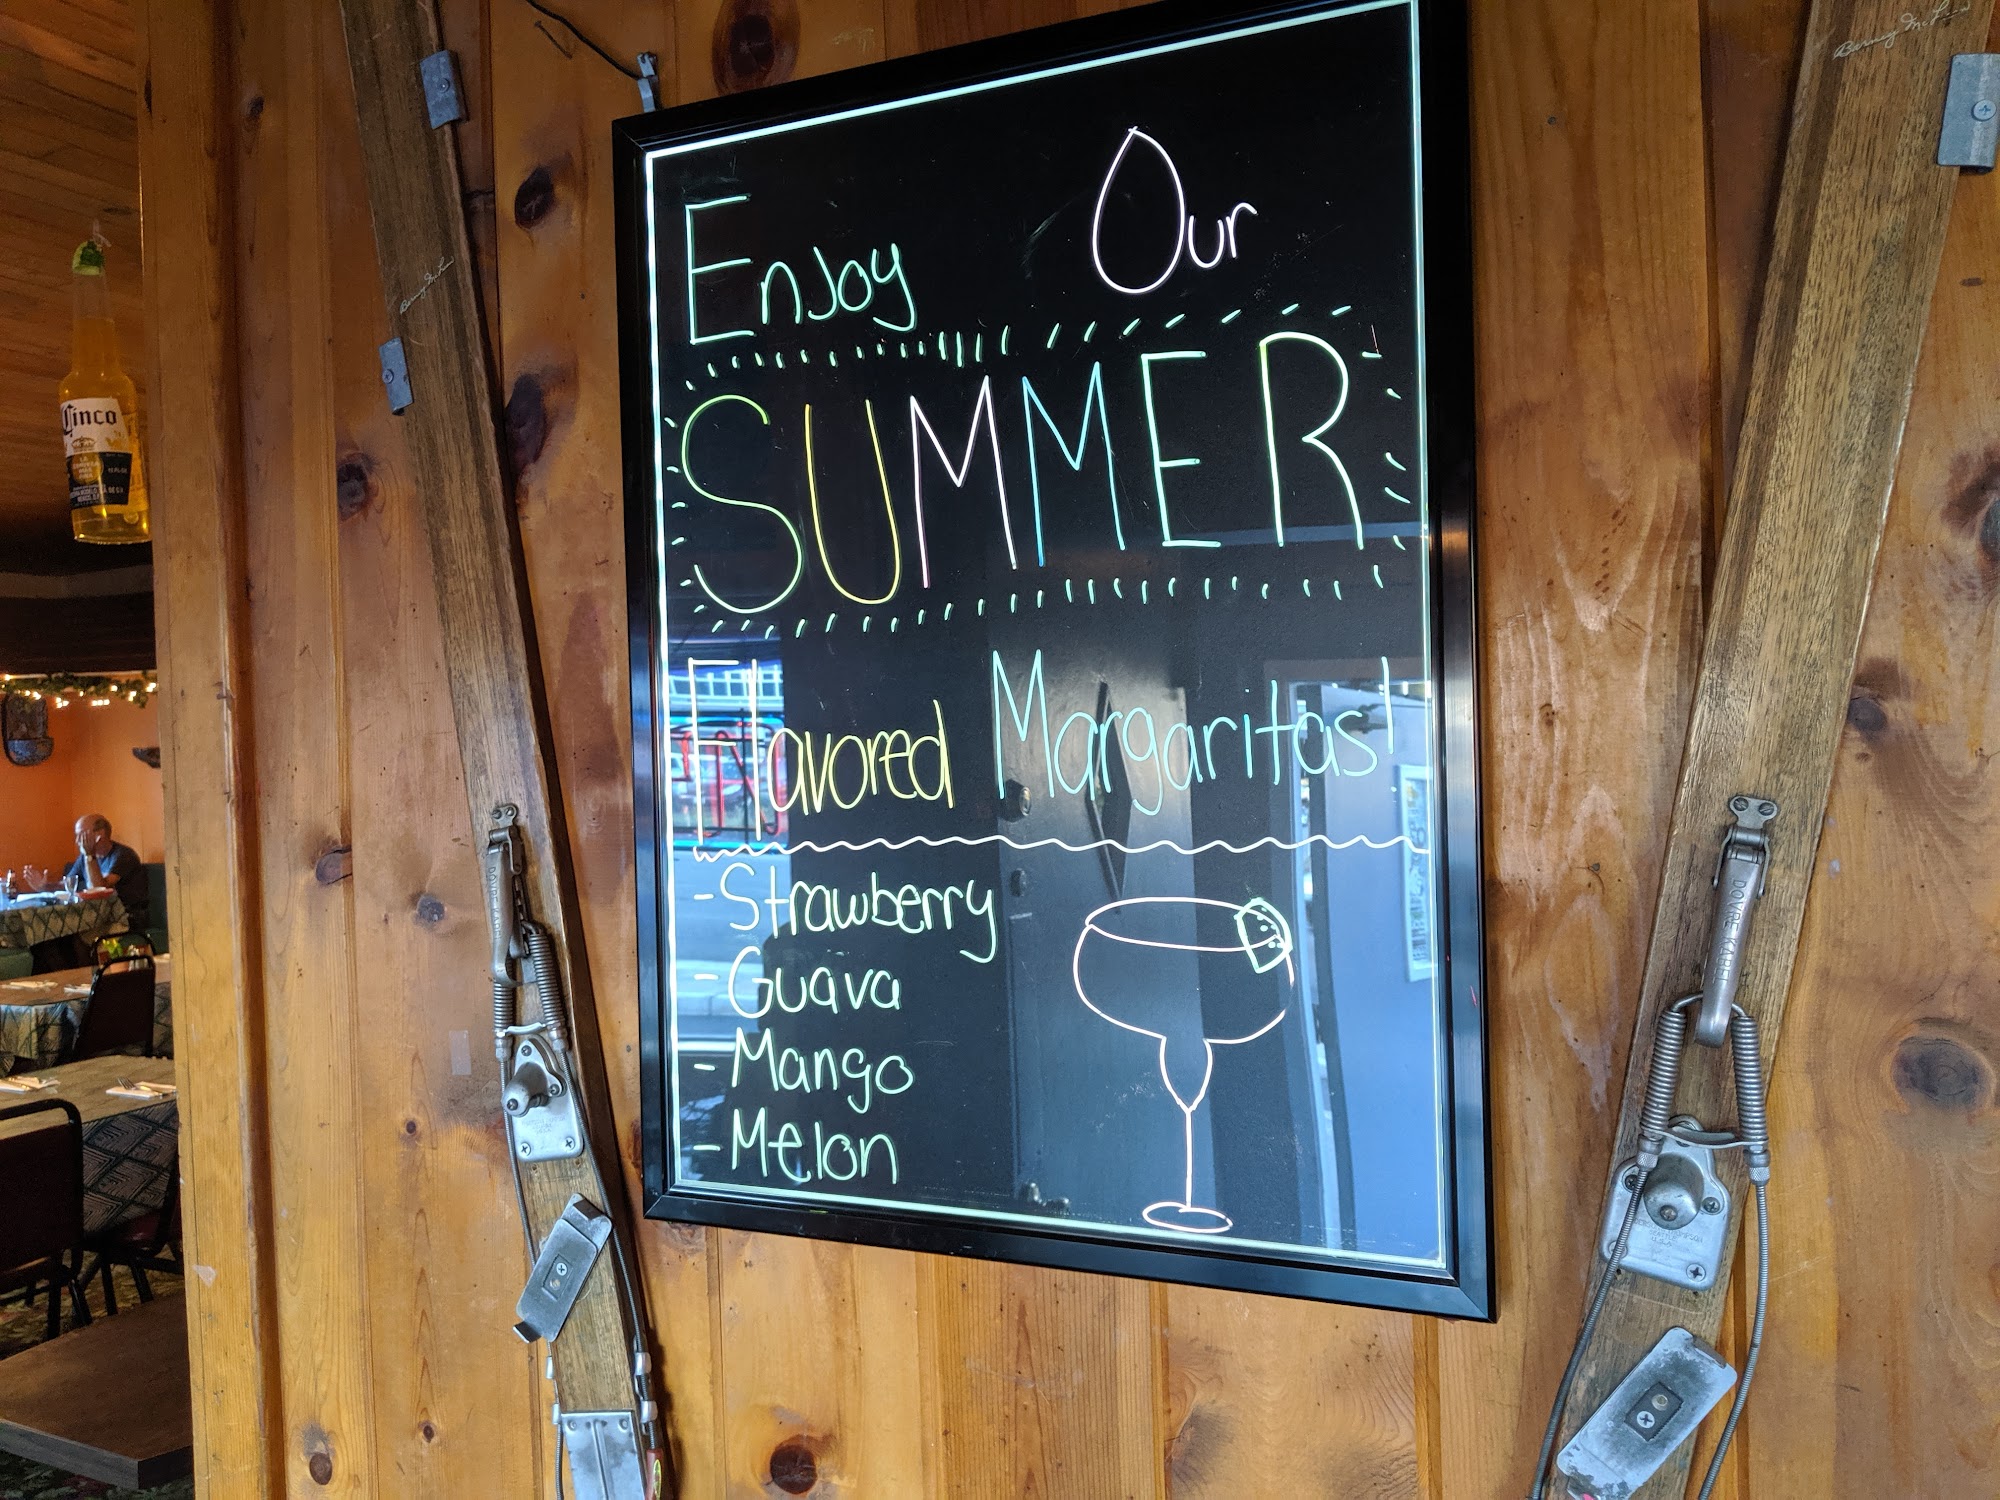 Enjoy Our
SUMMER
Flavored Margaritas!
-Strawberry
-Guava
-Mango
-Melon
Cinco
DOVRE KABE